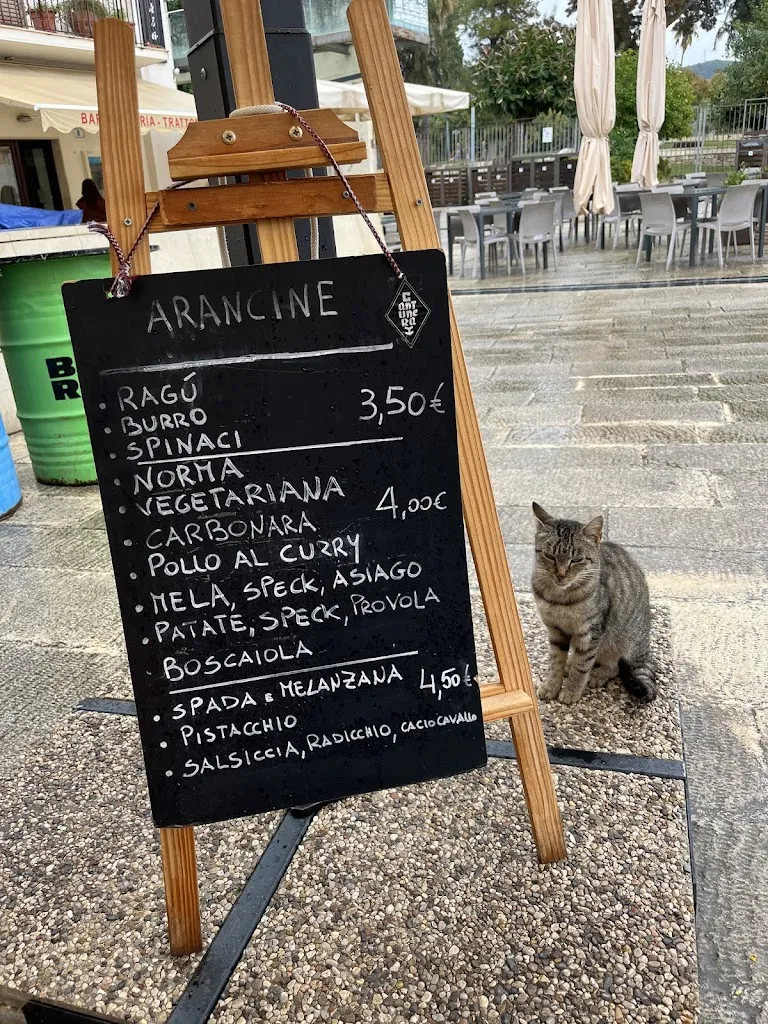 BAR
RIA - TRATTO
B
R
ARANCINE
CANTUNERA
• RAGÚ
• BURRO 3,50€
• SPINACI
• NORMA
• VEGETARIANA
• CARBONARA 4,00€
• POLLO AL CURRY
• MELA, SPECK, ASIAGO
• PATATE, SPECK, PROVOLA
BOSCAIOLA
• SPADA E MELANZANA 4,50€
• PISTACCHIO
• SALSICCIA, RADICCHIO, CACIOCAVALLO